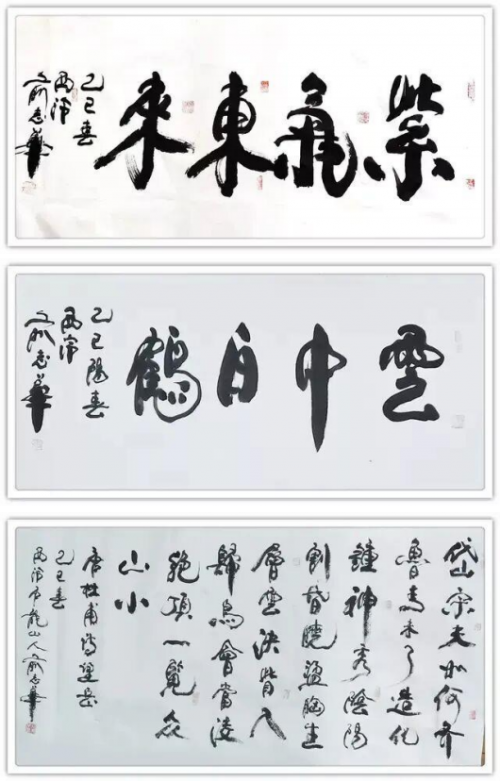 紫氣東來
乙巳春
志華
雲中白鶴
乙巳陽春
志華
岱宗夫如何齊
魯青未了造化
鍾神秀陰陽
割昏曉盪胸生
層雲決眥入
歸鳥會當淩
絕頂一覽衆
山小
唐杜甫詩望岳
乙巳春
山人 志華